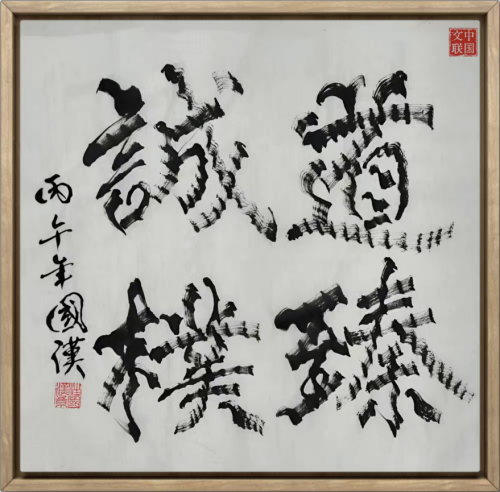 中国
文联
道臻
誠樸
丙午年國漢